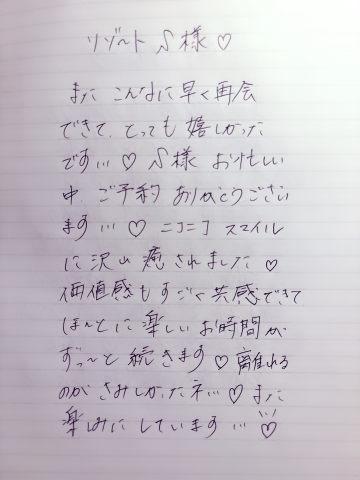 リゾート S様♡
また こんなに早く再会
できて、とっても嬉しかった
です…♡ S様 お忙しい
中、ご予約 ありがとうござい
ます…♡ ニコニコ スマイル
に沢山 癒されました♡
価値感もすごく共感できて
ほんとに楽しいお時間が
ずっ〜と続きます♡離れる
のが さみしかったネ…♡また
楽しみにしています…♡